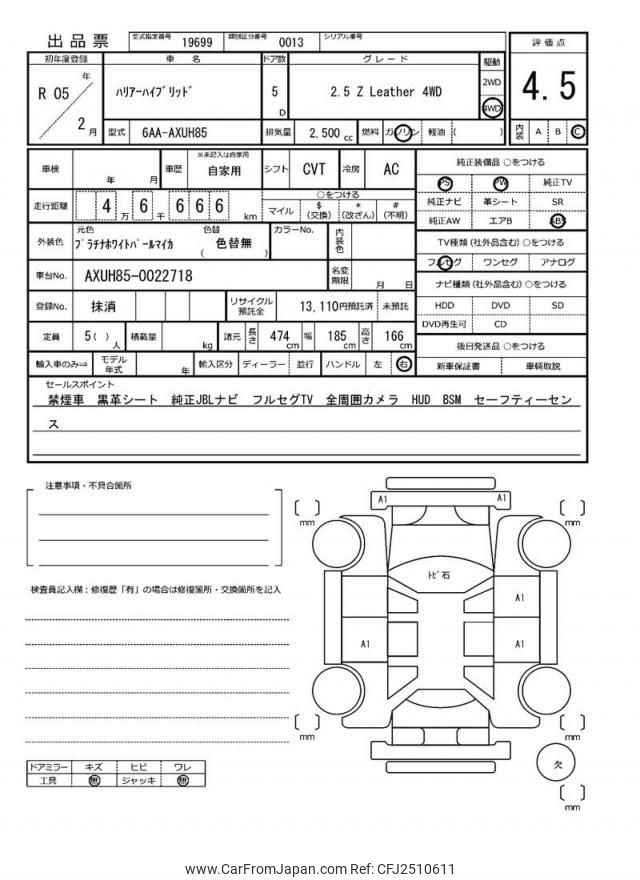 出品票 型式指定番号 19699 類別区分番号 0013 シリアル番号
評価点
4.5
内装 A B C
初年度登録 車名 ドア数 グレード 駆動
R 05 年 2 月
ハリアーハイブリッド 5 D 2.5 Z Leather 4WD 2WD 4WD
型式 6AA-AXUH85 排気量 2,500 cc 燃料 ガソリン 軽油 ( )
車検 年 月 車歴 ※未記入は自家用 自家用 シフト CVT 冷房 AC
走行距離 4 万 6 千 6 6 6 km
○をつける
マイル $(交換) *(改ざん) #(不明)
外装色 元色 プラチナホワイトパールマイカ 色替 ( 色替無 ) カラーNo. 内装色
車台No. AXUH85-0022718 名変期限 月 日
登録No. 抹消 リサイクル預託金 13,110円預託済 未預託
定員 5( ) 人 積載量 kg 諸元 長さ 474 cm 幅 185 cm 高さ 166 cm
輸入車のみ⇒ モデル年式 年 輸入区分 ディーラー 並行 ハンドル 左 右
純正装備品 ○をつける
PS PW 純正TV
純正ナビ 革シート SR
純正AW エアB ABS
TV種類(社外品含む)○をつける
フルセグ ワンセグ アナログ
ナビ種類(社外品含む)○をつける
HDD DVD SD
DVD再生可 CD
後日発送品 ○をつける
新車保証書 車輌取説
セールスポイント
禁煙車 黒革シート 純正JBLナビ フルセグTV 全周囲カメラ HUD BSM セーフティーセン
ス
注意事項・不具合箇所
検査員記入欄:修復歴「有」の場合は修復箇所・交換箇所を記入
ドアミラー キズ ヒビ ワレ
工具 無 ジャッキ 無
A1 A1
mm mm
トビ石
A1
A1 A1
mm mm
欠
mm
www.CarFromJapan.com Ref: CFJ2510611